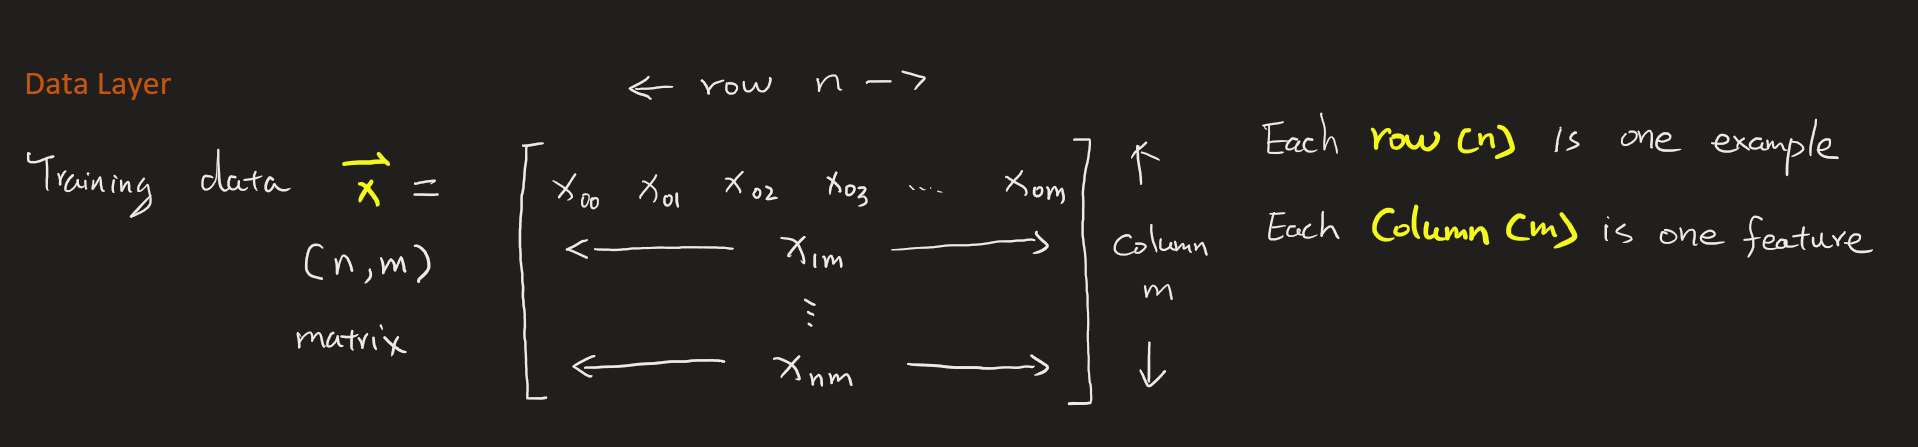 Data Layer
← row n →
Training data x⃗ =
(n,m)
matrix
x₀₀ x₀₁ x₀₂ x₀₃ .... x₀ₘ
← x₁ₘ →
⋮
← xₙₘ →
↑
Column
m
↓
Each row (n) is one example
Each Column (m) is one feature